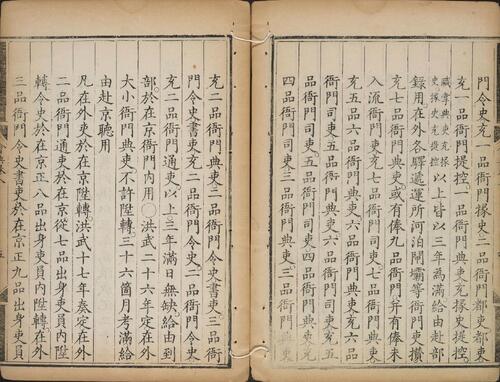 門令史充一品衙門掾史二品衙門都吏都吏
充一品衙門提控一品衙門典吏充掾史提控
掾史充提控以上皆以三年為滿給由赴部
錄用在外各驛遞運所河泊閘壩等衙門吏攢
充七品衙門典吏或有俸九品衙門并有俸未
入流衙門典吏充七品衙門司吏七品衙門典吏
充五品六品衙門典吏六品衙門典吏充六品
衙門司吏六品衙門司吏五品衙門典吏充五
品衙門司吏五品衙門司吏四品衙門典吏充
四品衙門司吏四品衙門司吏三品衙門典吏三品衙門典吏
充二品衙門典吏二品衙門令史書吏三品衙
門令史書吏充二品衙門令史二品衙門令史
充二品衙門通吏以上三年滿日無缺給由到
部於在京衙門內用○洪武二十六年定在外
大小衙門典吏不許陞轉三十六箇月考滿給
由赴京聽用
凡在外吏於在京陞轉洪武十七年奏定在外
二品衙門通吏於在京從七品出身吏員內陞
轉令史於在京正八品出身吏員內陞轉在外
三品衙門令史書吏於在京正九品出身吏員